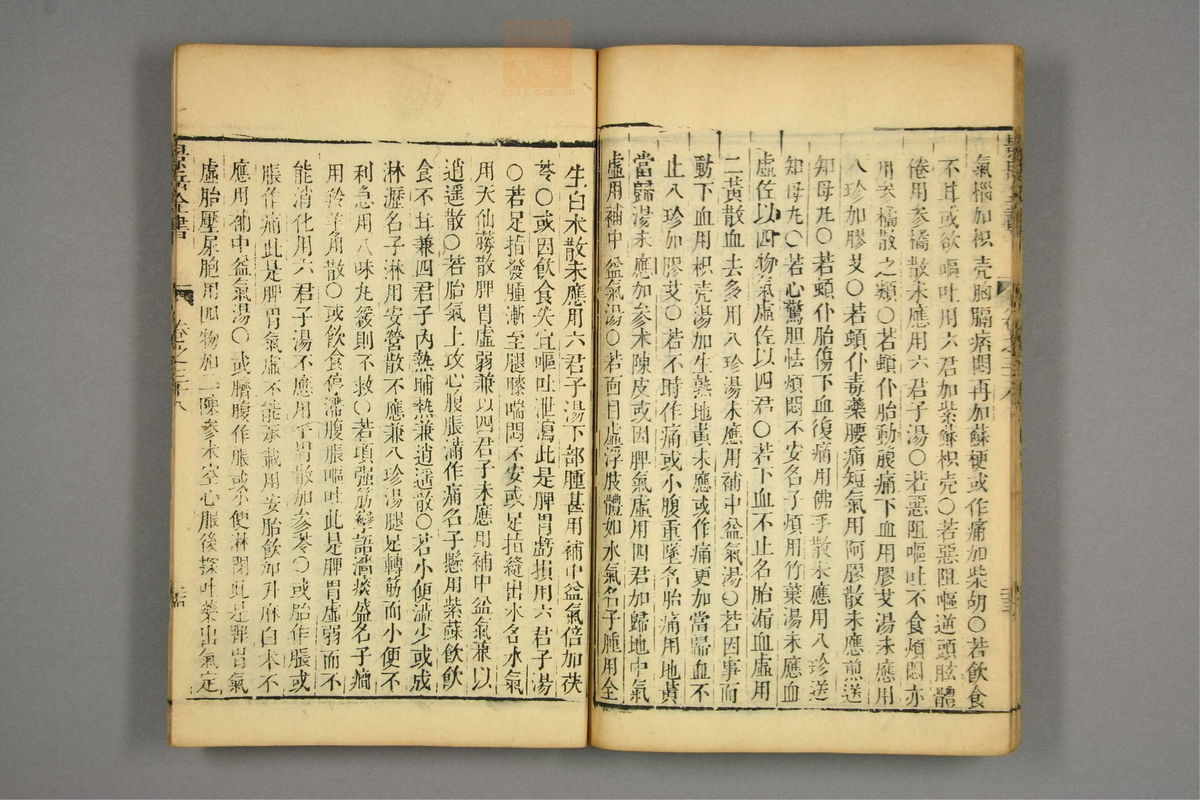 氣惱加枳壳胸膈痞悶再加蘇梗或作痛加柴胡〇若飲食
不甘或欲嘔吐用六君加紫蘇枳壳〇若惡阻嘔逆頭眩體
倦用參橘散未應用六君子湯〇若惡阻嘔吐不食煩悶亦
用參橘散之類〇若頓仆胎動腹痛下血用膠艾湯未應用
八珍加膠艾〇若頓仆毒藥腰痛短氣用阿膠散未應煎送
知母丸〇若頓仆胎傷下血復痛用佛手散未應用八珍送
知母丸〇若心驚胆怯煩悶不安名子煩用竹葉湯未應血
虛佐以四物氣虛佐以四君〇若下血不止名胎漏血虛用
二黃散血去多用八珍湯未應用補中益氣湯〇若因事而
動下血用枳壳湯加生熟地黃未應或作痛更加當歸血不
止八珍加膠艾〇若不時作痛或小腹重墜名胎痛用地黃
當歸湯未應加參朮陳皮或因脾氣虛用四君加歸地中氣
虛用補中益氣湯〇若面目虛浮肢體如水氣名子腫用全
生白朮散未應用六君子湯下部腫甚用補中益氣倍加茯
苓〇或因飲食失宜嘔吐泄瀉此是脾胃虧損用六君子湯
〇若足指發腫漸至腿膝喘悶不安或足指縫出水名水氣
用天仙藤散脾胃虛弱兼以四君子未應用補中益氣兼以
逍遥散〇若胎氣上攻心腹脹滿作痛名子懸用紫蘇飲飲
食不甘兼四君子內熱晡熱兼逍遥散〇若小便澁少或成
淋瀝名子淋用安營散不應兼八珍湯腿足轉筋而小便不
利急用八味丸緩則不救〇若項强筋攣語澁痰盛名子癇
用羚羊角散〇或飲食停滯腹脹嘔吐此是脾胃虛弱而不
能消化用六君子湯不應用平胃散加參苓〇或胎作脹或
脹作痛此是脾胃氣虛不能承載用安胎飲加升麻白朮不
應用補中益氣湯〇或臍腹作脹或小便淋閉此是脾胃氣
虛胎壓尿胞用四物加二陳參朮空心服後探吐藥出氣定
景岳全書
卷之三十八
景岳全書